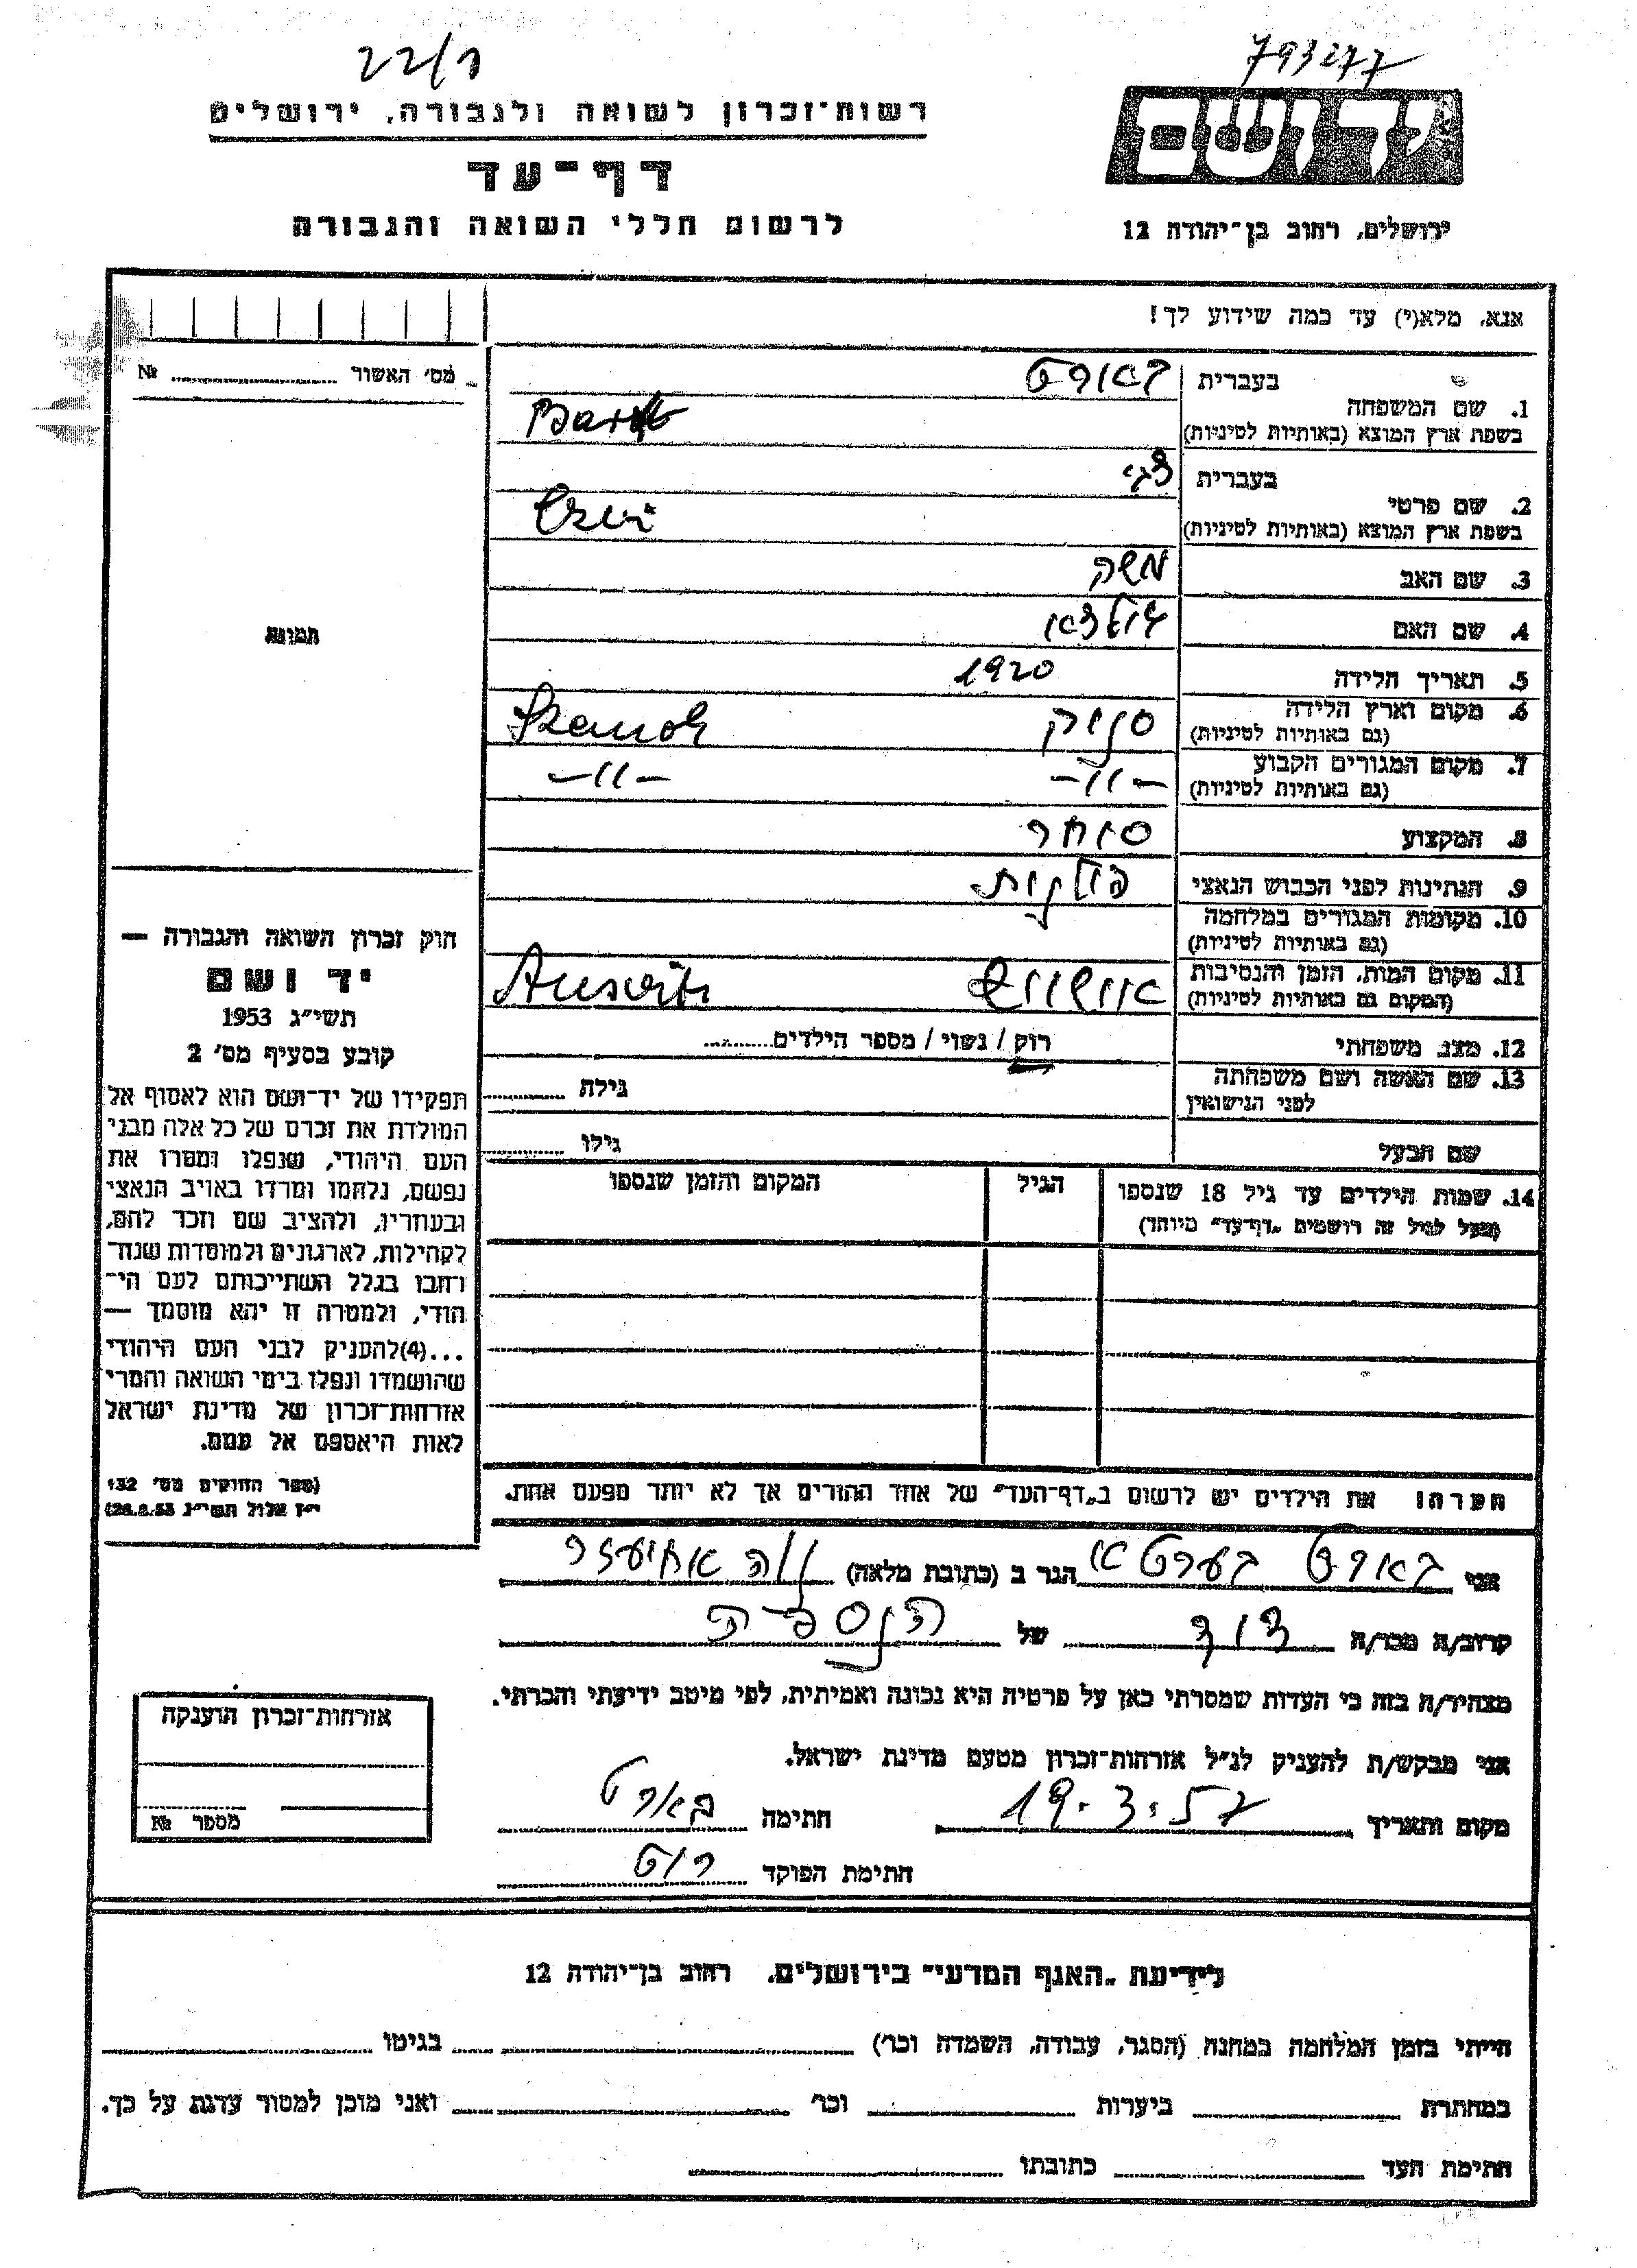 22/ר
793277
רשות-זכרון לשואה ולגבורה, ירושלים
דף-עד
לרשום חללי השואה והגבורה
יד ושם
ירושלים, רחוב בן-יהודה 12
אנא, מלא(י) עד כמה שידוע לך!
מס' האשור № 
1. שם המשפחה
בעברית בארט
בשפת ארץ המוצא (באותיות לטיניות) Bart
2. שם פרטי
בעברית צבי
בשפת ארץ המוצא (באותיות לטיניות) Cewi
3. שם האב משה
4. שם האם
5. תאריך הלידה 1920
6. מקום וארץ הלידה סנוק
(גם באותיות לטיניות) Szanok
7. מקום המגורים הקבוע -״-
(גם באותיות לטיניות) -״-
8. המקצוע סוחר
9. הנתינות לפני הכבוש הנאצי פולנית
10. מקומות המגורים במלחמה
(גם באותיות לטיניות)
11. מקום המות, הזמן והנסיבות אושוויץ
(המקום גם באותיות לטיניות) Auswitz
12. מצב משפחתי רוק / נשוי / מספר הילדים
13. שם האשה ושם משפחתה
לפני הנישואין גילה
שם הבעל גילו
14. שמות הילדים עד גיל 18 שנספו הגיל המקום והזמן שנספו
(מעל לגיל זה רושמים „דף-עד" מיוחד)
תמונה
חוק זכרון השואה והגבורה —
יד ושם
תשי״ג 1953
קובע בסעיף מס' 2
תפקידו של יד-ושם הוא לאסוף אל
המולדת את זכרם של כל אלה מבני
העם היהודי, שנפלו ומסרו את
נפשם, נלחמו ומרדו באויב הנאצי
ובעוזריו, ולהציב שם וזכר להם,
לקהילות, לארגונים ולמוסדות שנח־
רבו בגלל השתייכותם לעם הי־
הודי, ולמטרה זו יהא מוסמך —
...(4) להעניק לבני העם היהודי
שהושמדו ונפלו בימי השואה והמרי
אזרחות-זכרון של מדינת ישראל
לאות היאספם אל עמם.
(ספר החוקים מס' 132
י״ז אלול תשי״ג 28.8.53)
הערה! את הילדים יש לרשום ב„דף-העד" של אחד ההורים אך לא יותר מפעם אחת.
אני בארט בערטא הגר ב (כתובת מלאה) נוה אחיעזר
קרוב/ה מכר/ה דוד של הנספה
מצהיר/ה בזה כי העדות שמסרתי כאן על פרטיה היא נכונה ואמיתית, לפי מיטב ידיעתי והכרתי.
אני מבקש/ת להעניק לנ״ל אזרחות-זכרון מטעם מדינת ישראל.
מקום ותאריך 19.3.57 חתימה בארט
חתימת הפוקד רוט
אזרחות-זכרון הוענקה
מספר №
לידיעת „האגף המדעי" בירושלים, רחוב בן-יהודה 12
הייתי בזמן המלחמה במחנה (הסגר, עבודה, השמדה וכר') בגיטו
במחתרת ביערות וכר' ואני מוכן למסור עדות על כך.
חתימת העד כתובתו